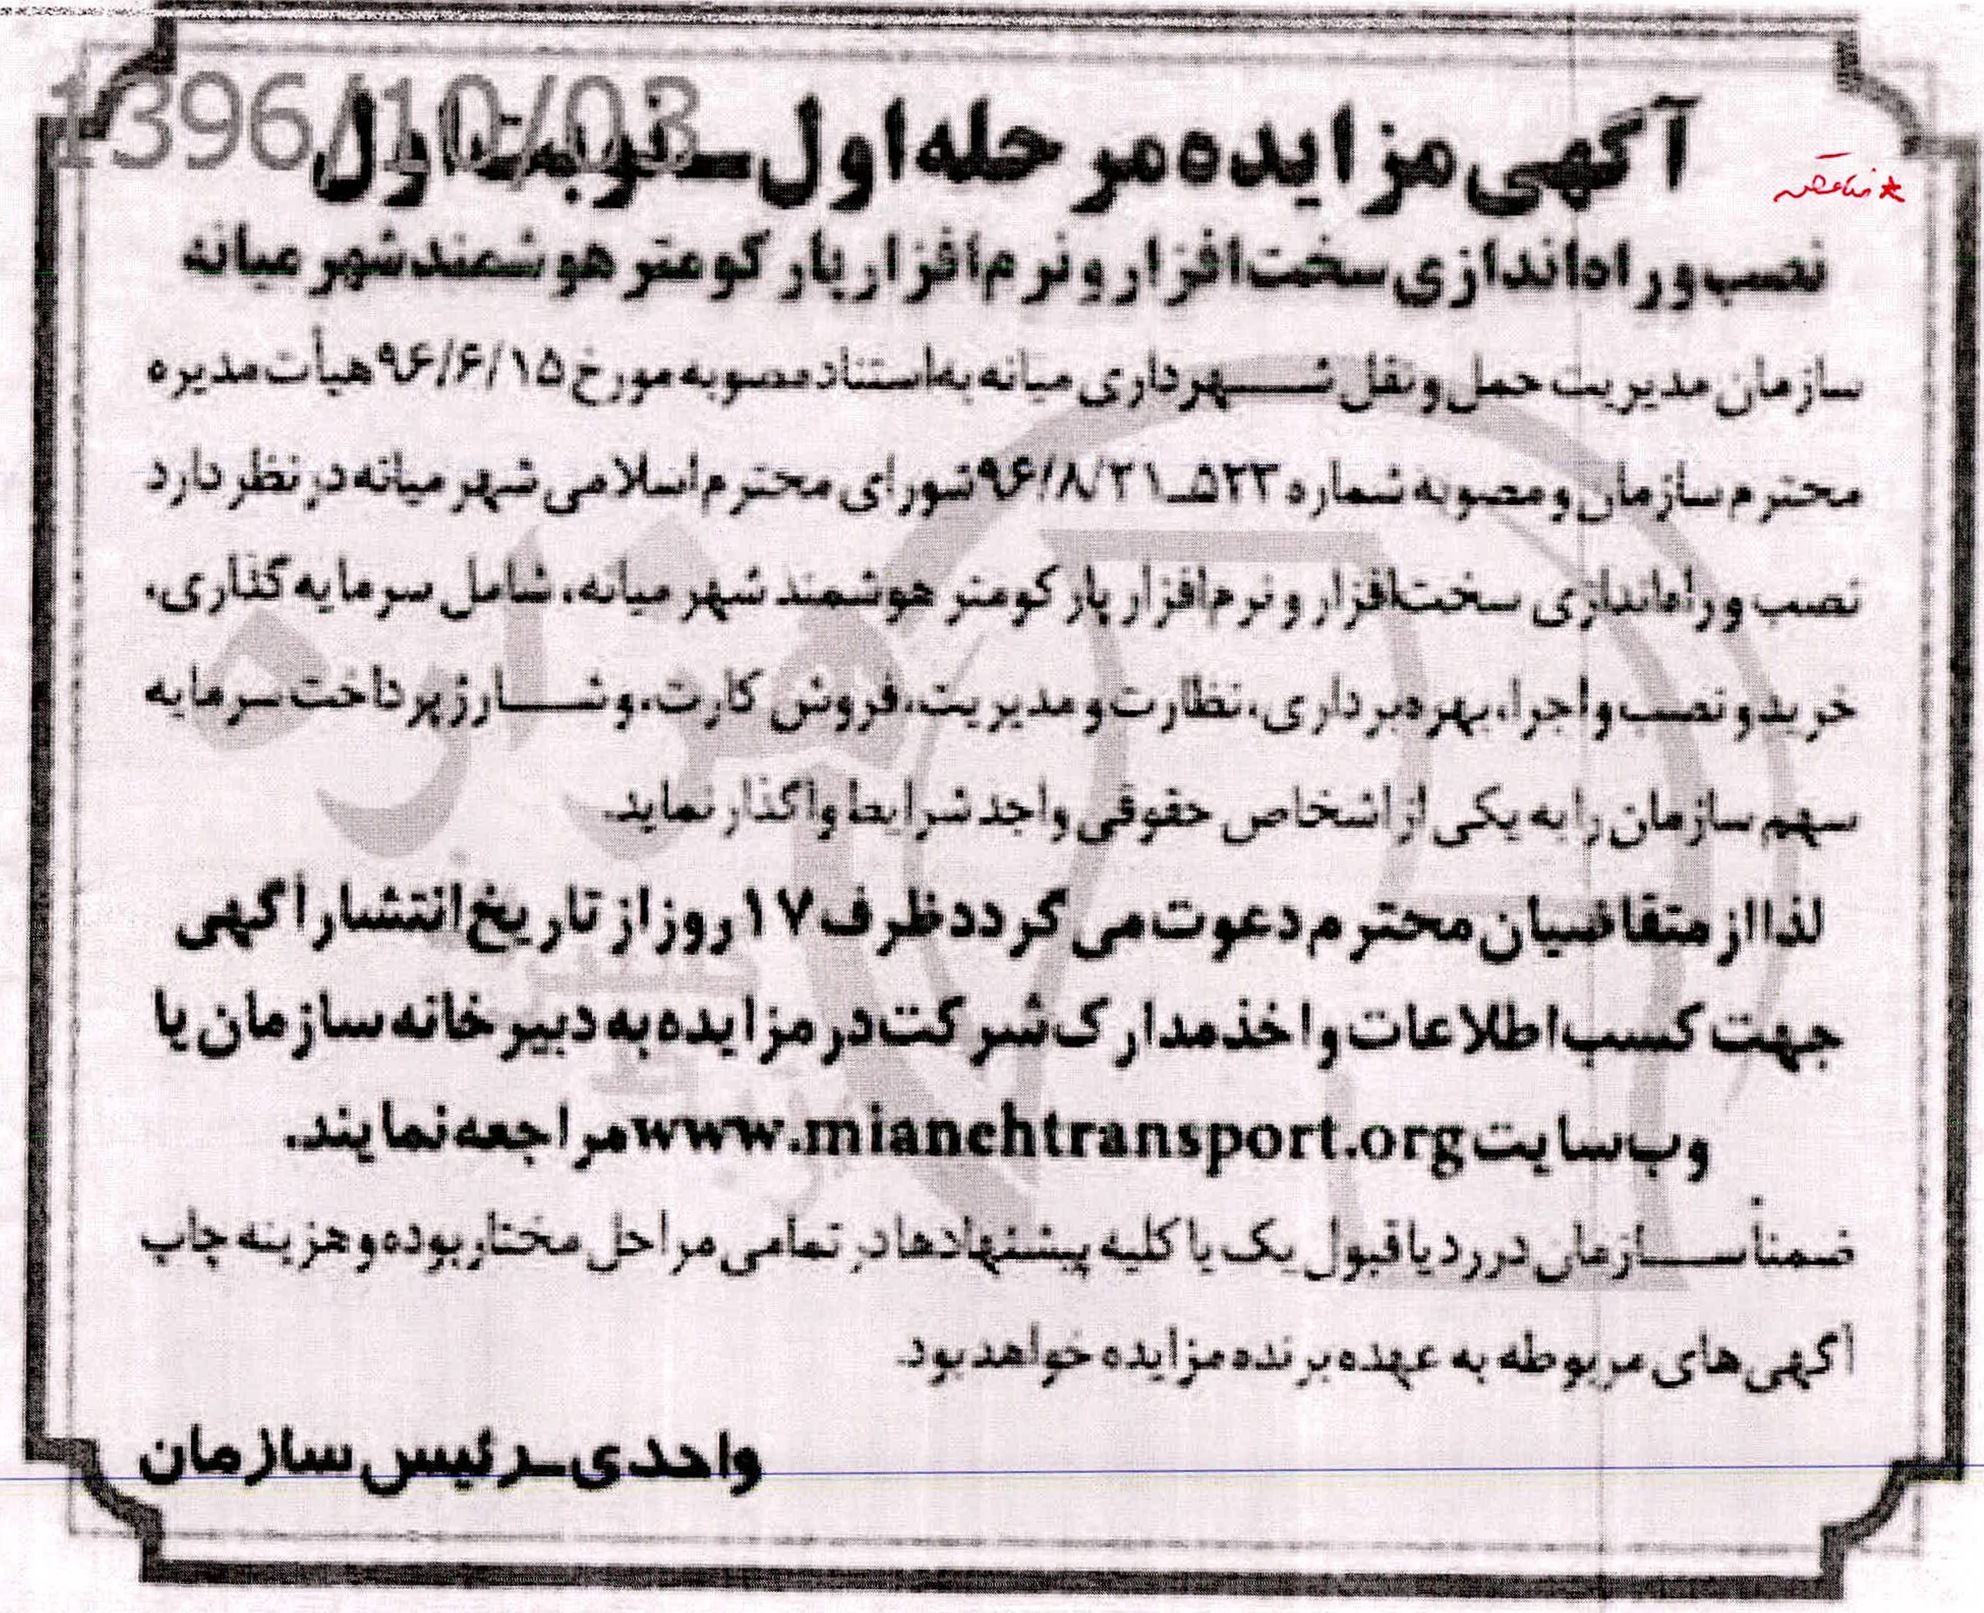 1396/10/03
آگهی مزایده مرحله اول ـ نوبت اول
نصب و راه‌اندازی سخت‌افزار و نرم‌افزار پارکومتر هوشمند شهر میانه
سازمان مدیریت حمل و نقل شهرداری میانه به‌استناد مصوبه مورخ ۹۶/۶/۱۵ هیأت مدیره
محترم سازمان و مصوبه شماره ۵۲۳ـ۹۶/۸/۲۱ شورای محترم اسلامی شهر میانه در نظر دارد
نصب و راه‌اندازی سخت‌افزار و نرم‌افزار پارکومتر هوشمند شهر میانه، شامل سرمایه گذاری،
خرید و نصب و اجرا، بهره‌برداری، نظارت و مدیریت، فروش کارت، و شارژ پرداخت سرمایه
سهم سازمان را به یکی از اشخاص حقوقی واجد شرایط واگذار نماید.
لذا از متقاضیان محترم دعوت می گردد ظرف ۱۷ روز از تاریخ انتشار آگهی
جهت کسب اطلاعات و اخذ مدارک شرکت در مزایده به دبیرخانه سازمان یا
وب سایت www.mianehtransport.org مراجعه نمایند.
ضمناً سازمان در رد یا قبول یک یا کلیه پیشنهادها در تمامی مراحل مختار بوده و هزینه چاپ
آگهی های مربوطه به عهده برنده مزایده خواهد بود.
واحدی ـ رئیس سازمان